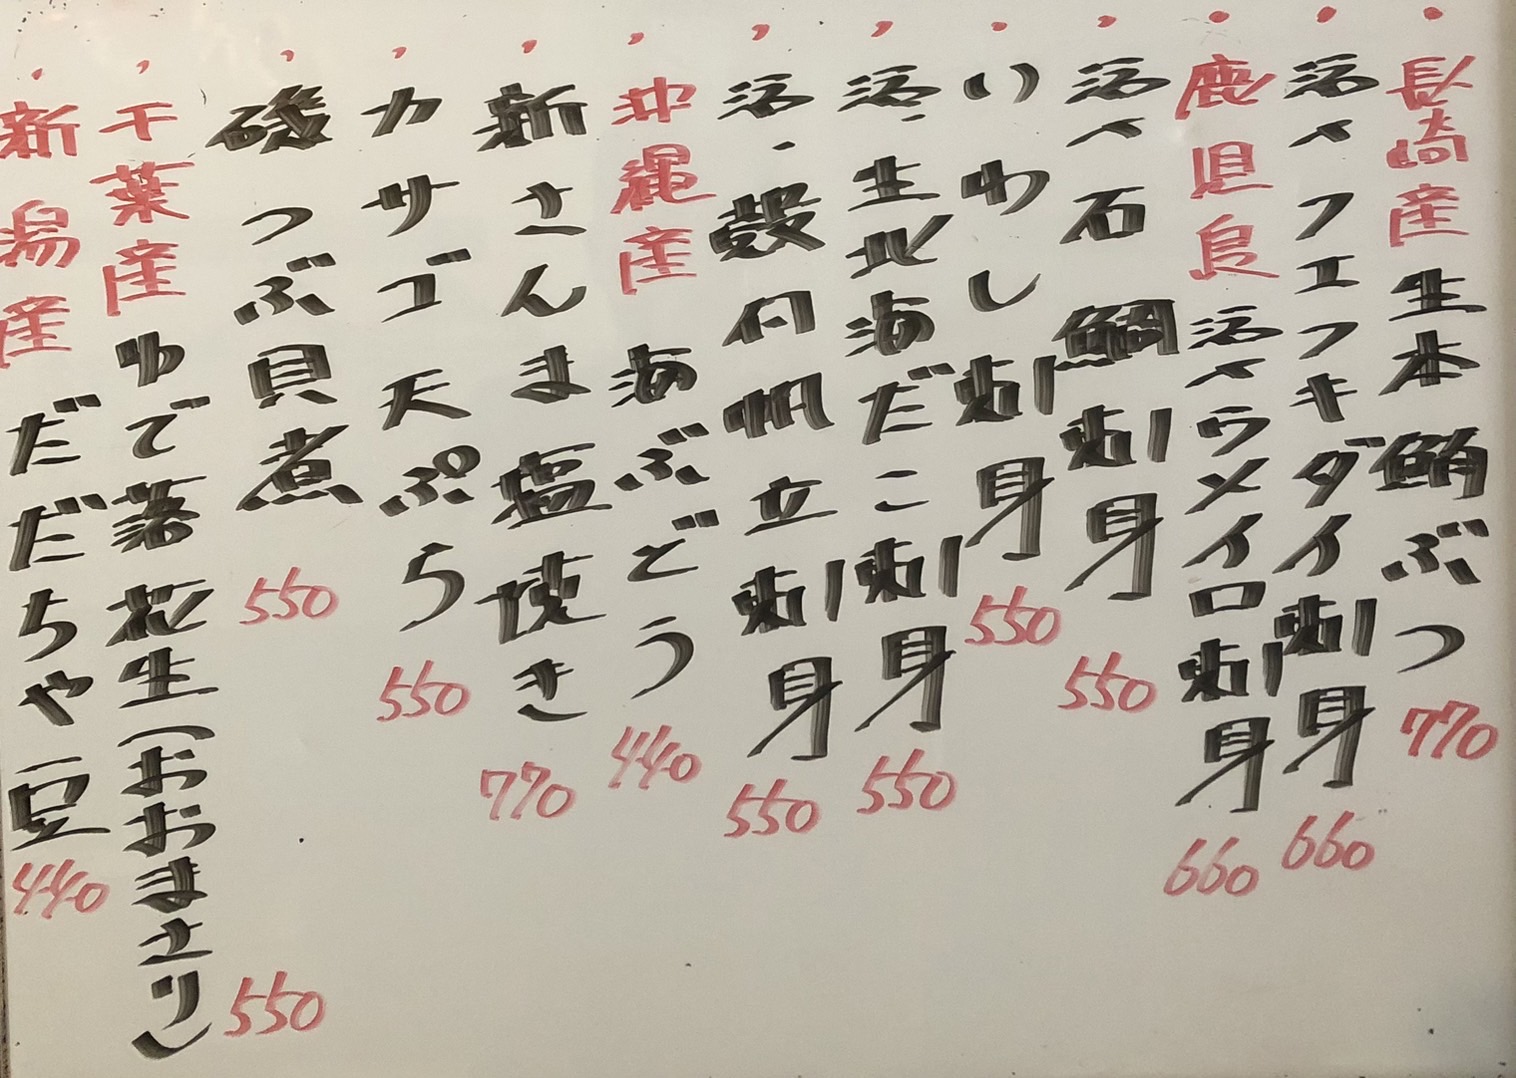 ・長崎産 生本鮪ぶつ 770
・活〆フエフキダイ刺身 660
・鹿児島 活〆ウメイロ刺身 660
・活〆石鯛刺身 550
・いわし刺身 550
・活・生北海だこ刺身 550
・活・殻付帆立刺身 550
・沖縄産 海ぶどう 440
・新さんま塩焼き 770
・カサゴ天ぷら 550
・磯つぶ貝煮 550
・千葉産 ゆで落花生(おおまさり) 550
・新潟産 だだちゃ豆 440